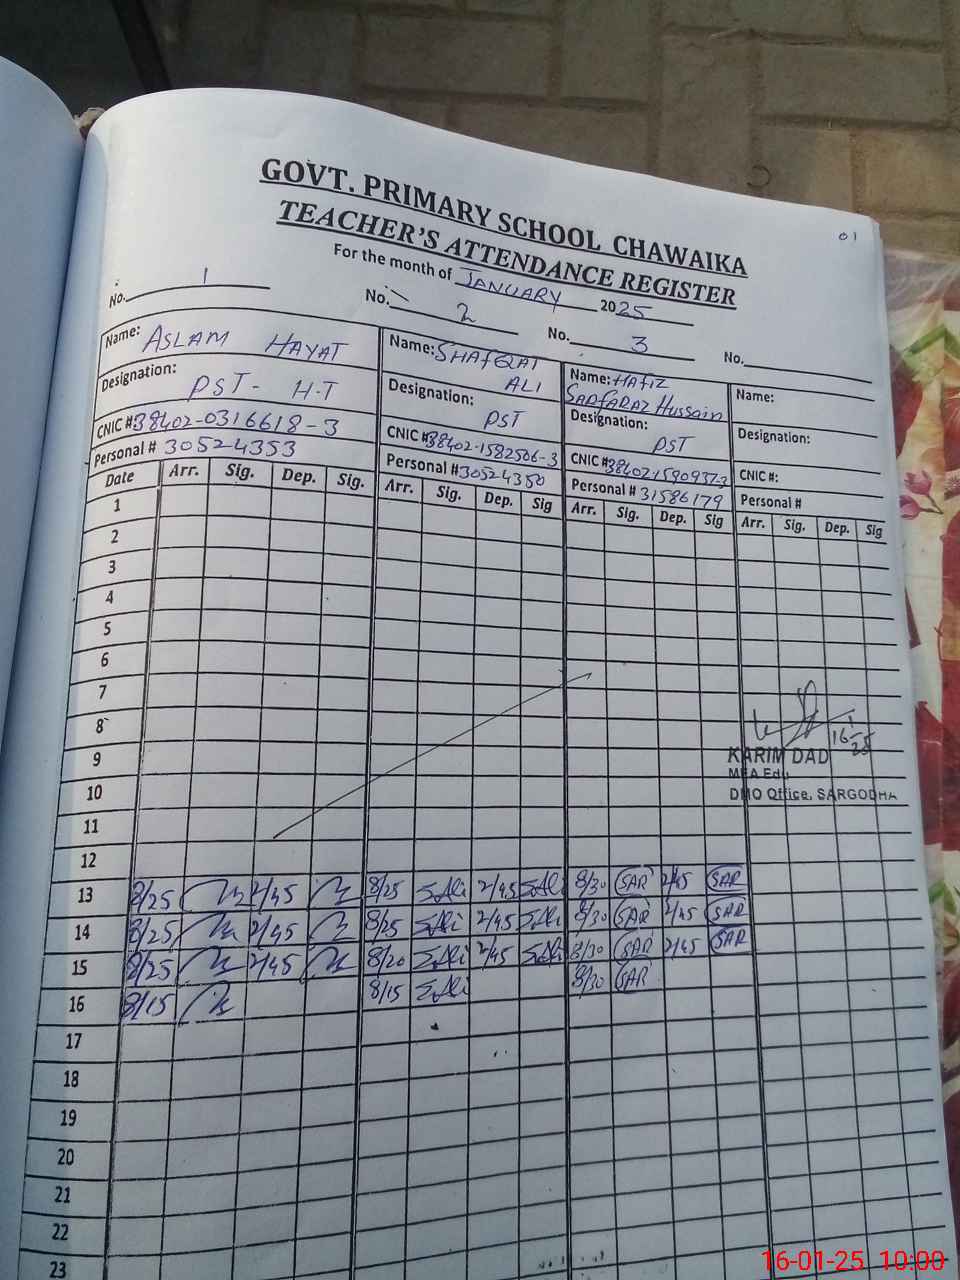 01
GOVT. PRIMARY SCHOOL CHAWAIKA
TEACHER'S ATTENDANCE REGISTER
For the month of JANUARY 2025
No. 1 No. 2 No. 3 No.
Name: ASLAM HAYAT
Designation: PST - H.T
CNIC # 38402-0316618-3
Personal # 30524353
Name: SHAFQAT ALI
Designation: PST
CNIC # 38402-1582506-3
Personal # 30524350
Name: HAFIZ SARFARAZ Hussain
Designation: PST
CNIC # 38402-1590937-3
Personal # 31586179
Name:
Designation:
CNIC #:
Personal #
Date Arr. Sig. Dep. Sig. Arr. Sig. Dep. Sig Arr. Sig. Dep. Sig Arr. Sig. Dep. Sig
1
2
3
4
5
6
7
8
9
10
11
12
13 8/25 2/45 8/25 S.Ali 2/45 S.Ali 8/30 SAR 2/45 SAR
14 8/25 2/45 8/25 S.Ali 2/45 S.Ali 8/30 SAR 2/45 SAR
15 8/25 2/45 8/20 S.Ali 2/45 S.Ali 8/30 SAR 2/45 SAR
16 8/15 8/15 S.Ali 8/30 SAR
17
18
19
20
21
22
23
16/1/25
KARIM DAD
MEA Edu
DMO Office, SARGODHA
16-01-25 10:00